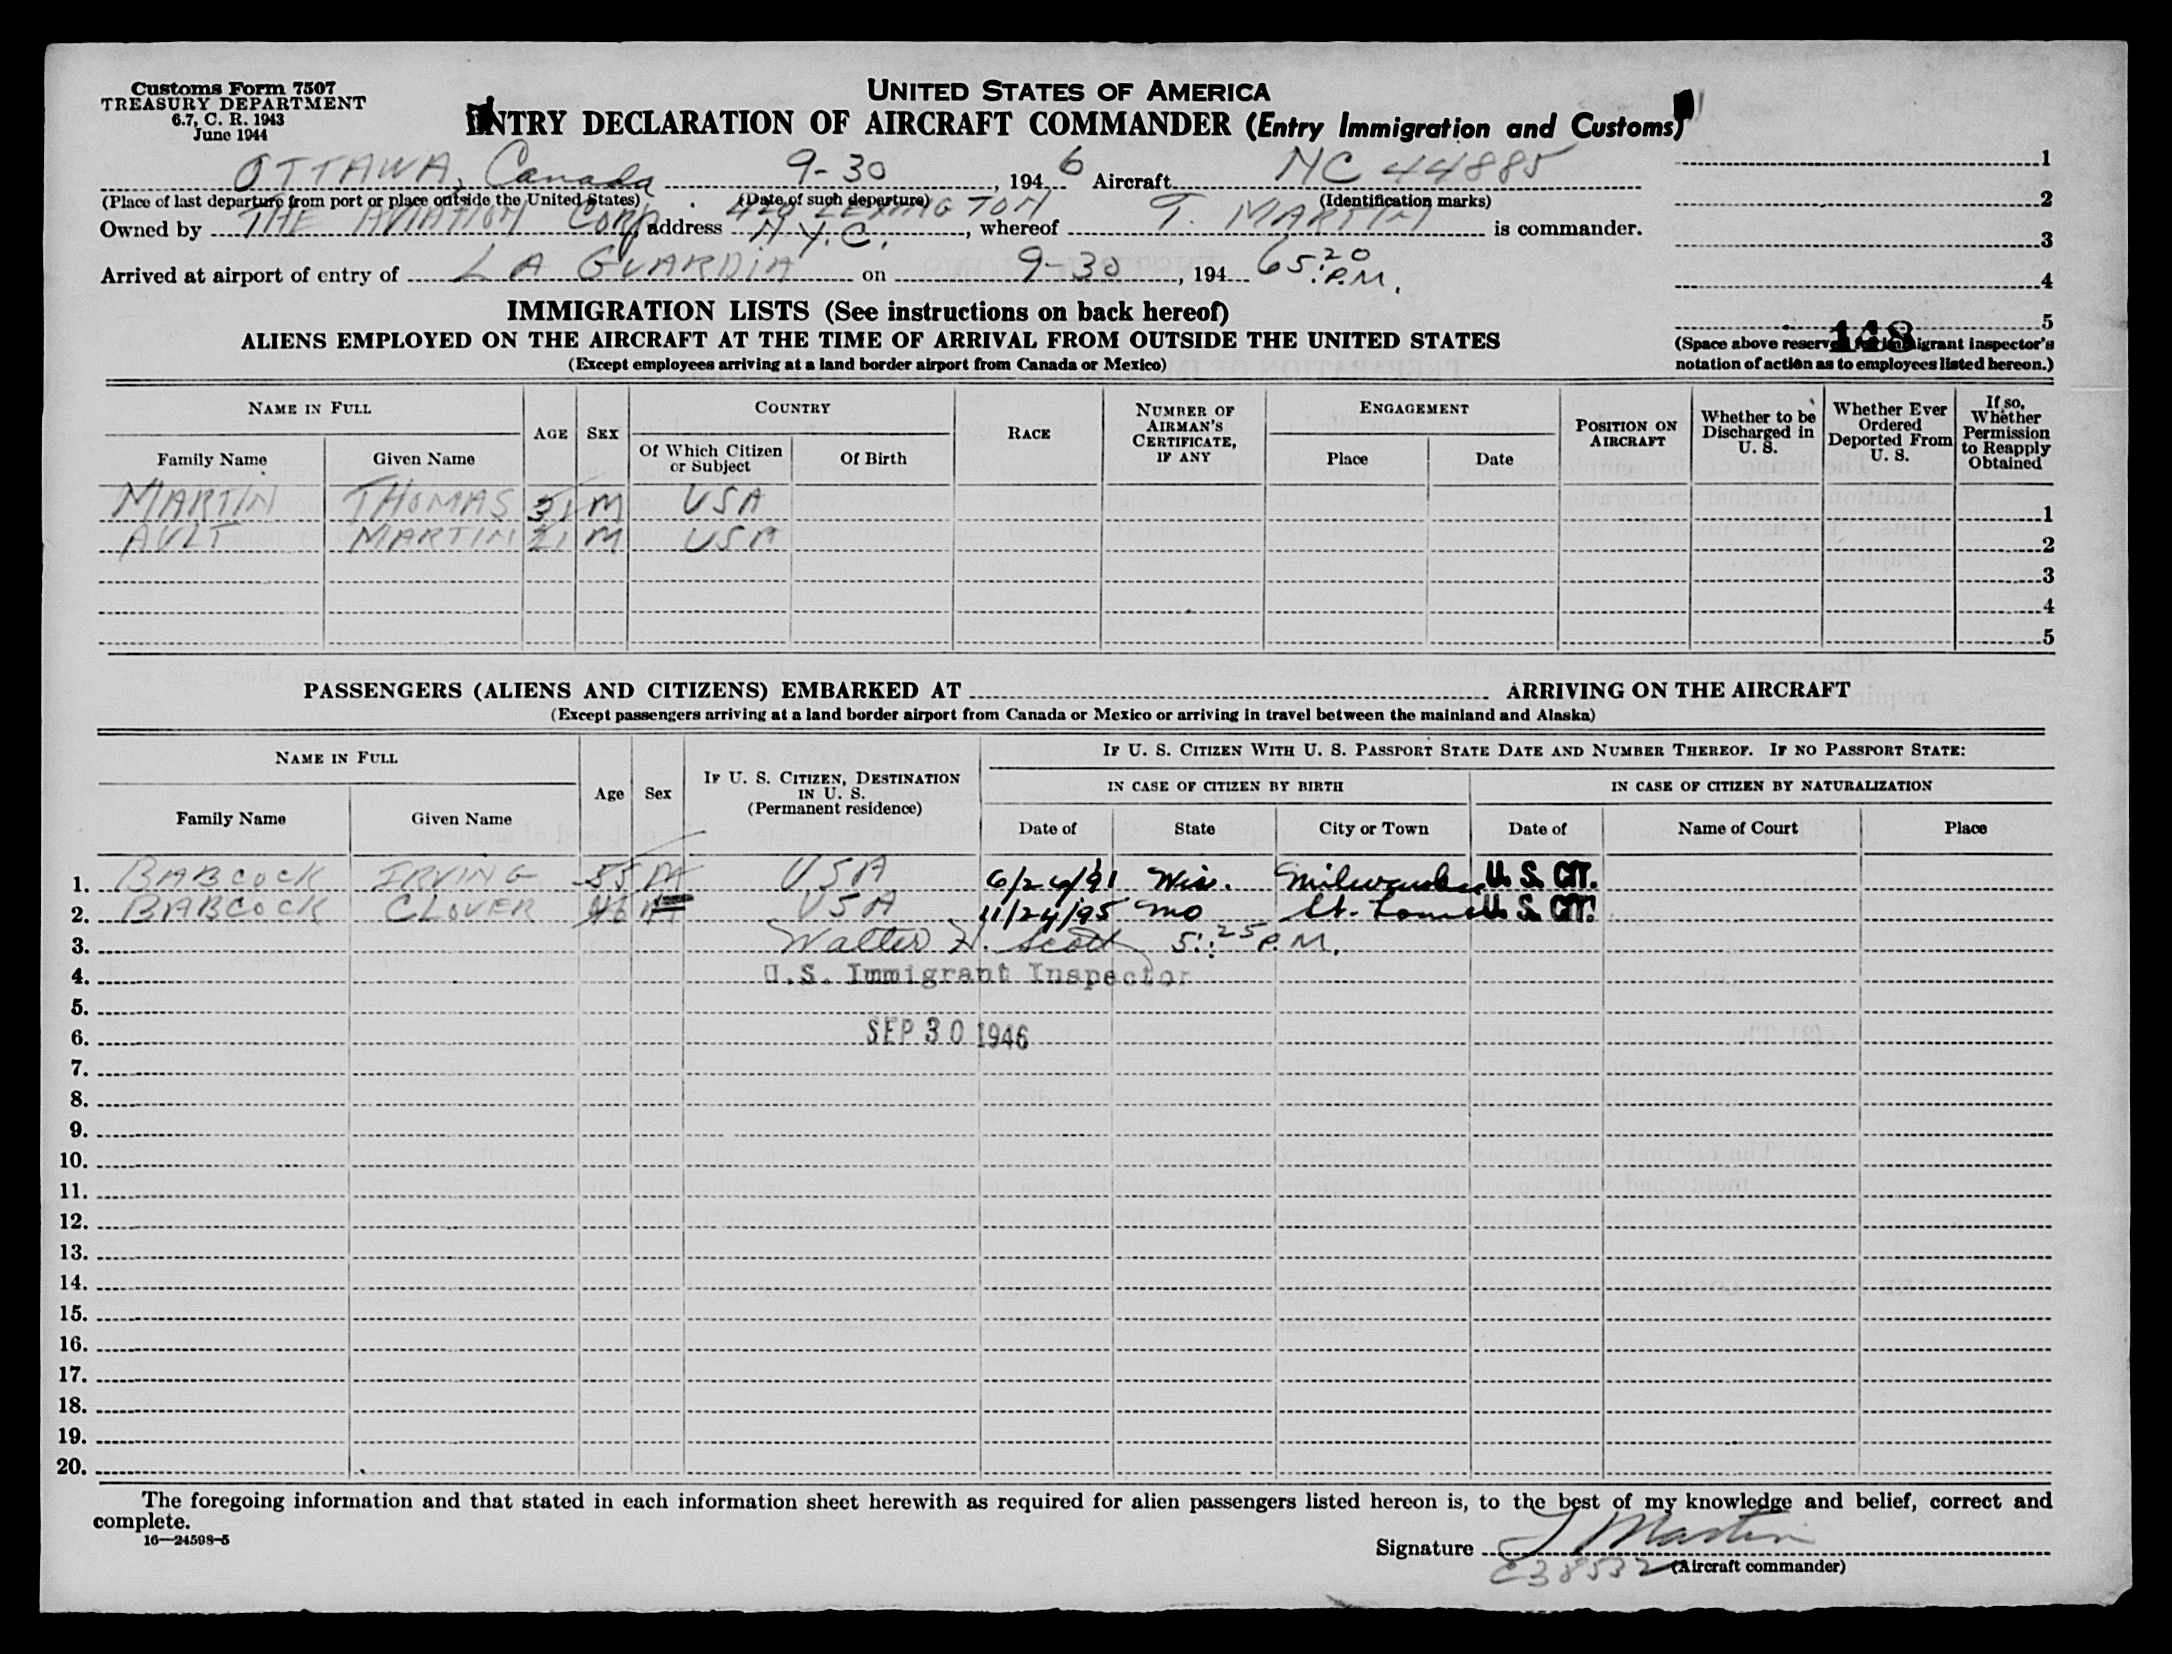 Customs Form 7507
TREASURY DEPARTMENT
6.7, C. R. 1943
June 1944
UNITED STATES OF AMERICA
ENTRY DECLARATION OF AIRCRAFT COMMANDER (Entry Immigration and Customs)
OTTAWA, Canada 9-30, 1946 Aircraft NC 44885
(Place of last departure from port or place outside the United States) (Date of such departure) (Identification marks)
Owned by THE AVIATION Corp. address 420 LEXINGTON N.Y.C., whereof T. MARTIN is commander.
Arrived at airport of entry of LA GUARDIA on 9-30, 1946 5:20 P.M.
1
2
3
4
5
148
(Space above reserved for immigrant inspector's
notation of action as to employees listed hereon.)
IMMIGRATION LISTS (See instructions on back hereof)
ALIENS EMPLOYED ON THE AIRCRAFT AT THE TIME OF ARRIVAL FROM OUTSIDE THE UNITED STATES
(Except employees arriving at a land border airport from Canada or Mexico)
NAME IN FULL AGE SEX COUNTRY RACE NUMBER OF AIRMAN'S CERTIFICATE, IF ANY ENGAGEMENT POSITION ON AIRCRAFT Whether to be Discharged in U. S. Whether Ever Ordered Deported From U. S. If so, Whether Permission to Reapply Obtained
Family Name Given Name Of Which Citizen or Subject Of Birth Place Date
MARTIN THOMAS 31 M USA 1
AULT MARTIN 21 M USA 2
3
4
5
PASSENGERS (ALIENS AND CITIZENS) EMBARKED AT ARRIVING ON THE AIRCRAFT
(Except passengers arriving at a land border airport from Canada or Mexico or arriving in travel between the mainland and Alaska)
NAME IN FULL Age Sex IF U. S. CITIZEN, DESTINATION IN U. S. (Permanent residence) IF U. S. CITIZEN WITH U. S. PASSPORT STATE DATE AND NUMBER THEREOF. IF NO PASSPORT STATE:
IN CASE OF CITIZEN BY BIRTH IN CASE OF CITIZEN BY NATURALIZATION
Family Name Given Name Date of State City or Town Date of Name of Court Place
1. BABCOCK IRVING 55 M USA 6/26/91 Wis. Milwaukee U. S. CIT.
2. BABCOCK CLOVER 46 USA 11/24/95 Mo St. Louis U. S. CIT.
3. Walter H. Scott 5:25 P.M.
4. U.S. Immigrant Inspector
5.
6. SEP 30 1946
7.
8.
9.
10.
11.
12.
13.
14.
15.
16.
17.
18.
19.
20.
The foregoing information and that stated in each information sheet herewith as required for alien passengers listed hereon is, to the best of my knowledge and belief, correct and
complete.
16—24598-5
Signature T Martin
C38532 (Aircraft commander)